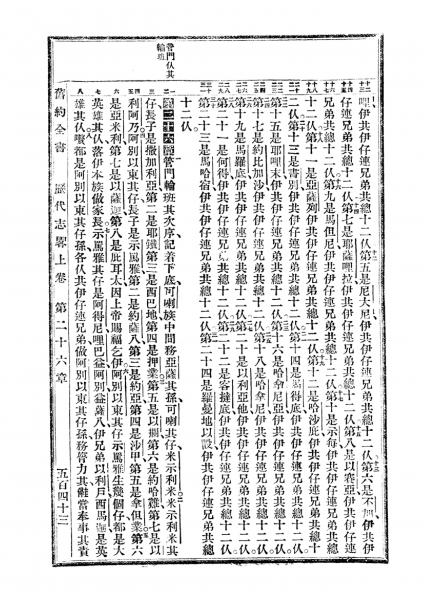 哩伊共伊仔連兄弟共總十二伩第五是尼大尼伊共伊仔連兄弟共總十二伩第六是不伊共伊
仔連兄弟共總十二伩第七是耶薩哩拉伊共伊仔連兄弟共總十二伩第八是以賽亞伊共伊仔連
兄弟共總十二伩第九是馬但尼伊共伊仔連兄弟共總十二伩第十是示每伊共伊仔連兄弟共總
十二伩第十一是亞薩列伊共伊仔連兄弟共總十二伩第十二是哈沙庇伊共伊仔連兄弟共總十
二伩第十三是書別伊共伊仔連兄弟共總十二伩第十四是得底伊共伊仔連兄弟共總十二伩
第十五是耶哩末伊共伊仔連兄弟共總十二伩第十六是哈拿尼亞伊共伊仔連兄弟共總十二伩
第十七是約比加沙伊共伊仔連兄弟共總十二伩第十八是哈拿尼伊共伊仔連兄弟共總十二伩
第十九是馬羅底伊共伊仔連兄弟共總十二伩第二十是以利亞他伊共伊仔連兄弟共總十二伩
第二十一是何得伊共伊仔連兄弟共總十二伩第二十二是客撻底伊共伊仔連兄弟共總十二伩
第二十三是馬哈宿伊共伊仔連兄弟共總十二伩第二十四是羅曼地以伊共伊仔連兄弟共總
十二伩
管門伩其輪班
第二十六章管門輪班其次序記着下底可喇族中間務亞薩其孫可喇其仔米示利米米示利米其
仔長子是撒加利亞第二是耶鐵第三是西巴地第四是押業第五是以攔第六是約哈難第七是以
利阿乃阿別以東其仔長子是示罵雅第二是約薩八第三是約亞第四是沙甲第五是拿但業第六
是亞米利第七是以薩迦第八是庇耳太因上帝賜福乞伊阿別以東其仔示罵雅生幾個仔都是大
英雄其伩落伊本族做家長示罵雅其仔是阿得尼哩巴益阿別益薩八伊兄弟以利戶西馬迦是英
雄其伩嚽都是阿別以東其仔孫各伩共伊仔連兄弟做阿別以東其仔孫務膂力其儺當奉事其責
舊約全書 歷代志畧上卷 第二十六章 五百四十三